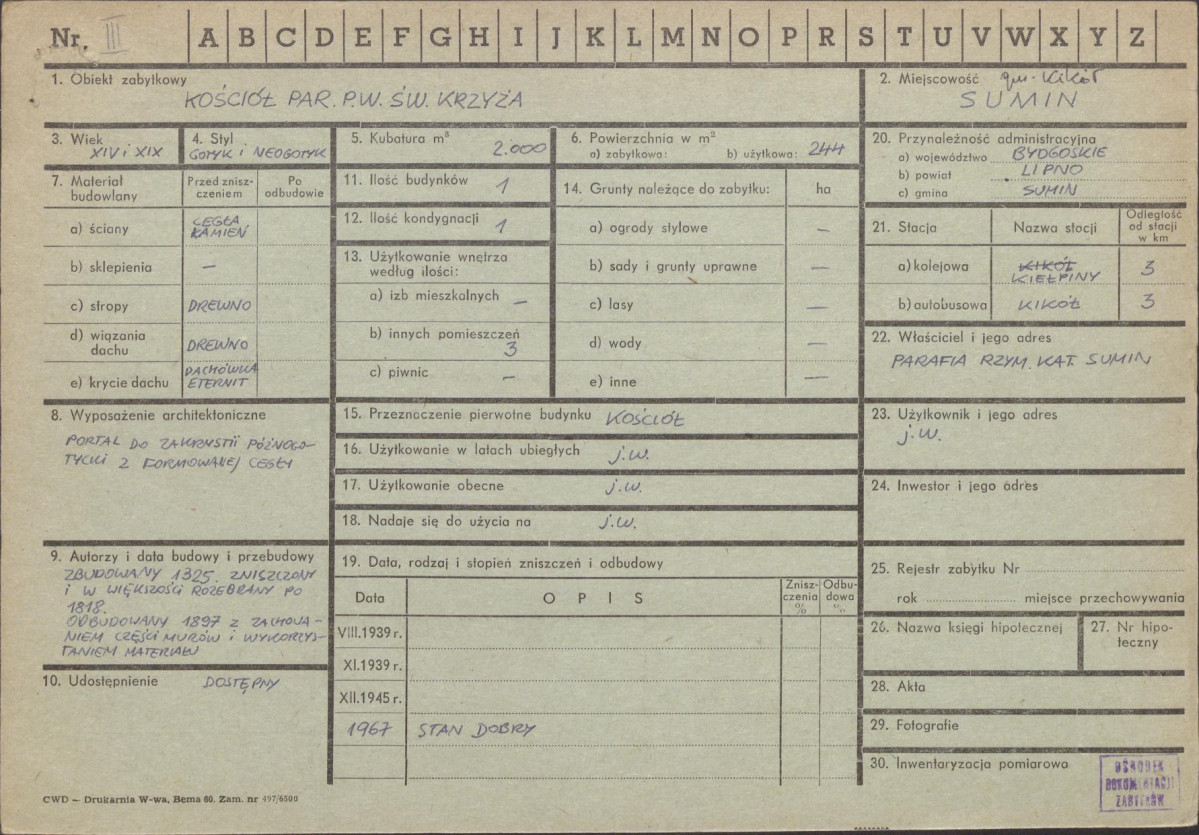 Nr. III A B C D E F G H I J K L M N O P R S T U V W X Y Z
1. Obiekt zabytkowy
KOŚCIÓŁ PAR. P.W. ŚW. KRZYŻA
2. Miejscowość gm. Kikół
SUMIN
3. Wiek
XIV i XIX
4. Styl
GOTYK i NEOGOTYK
5. Kubatura m³
2.000
6. Powierzchnia w m²
a) zabytkowa: b) użytkowa: 244
20. Przynależność administracyjna
a) województwo BYDGOSKIE
b) powiat LIPNO
c) gmina SUMIN
7. Materiał budowlany
Przed znisz-
czeniem
Po
odbudowie
a) ściany CEGŁA
KAMIEŃ
b) sklepienia —
c) stropy DREWNO
d) wiązania
dachu DREWNO
e) krycie dachu DACHÓWKA
ETERNIT
11. Ilość budynków 1
12. Ilość kondygnacji 1
13. Użytkowanie wnętrza
według ilości:
a) izb mieszkalnych —
b) innych pomieszczeń
3
c) piwnic —
14. Grunty należące do zabytku: ha
a) ogrody stylowe —
b) sady i grunty uprawne —
c) lasy —
d) wody —
e) inne —
21. Stacja Nazwa stacji Odległość
od stacji
w km
a) kolejowa KIKÓŁ
KIEŁPINY 3
b) autobusowa KIKÓŁ 3
22. Właściciel i jego adres
PARAFIA RZYM. KAT. SUMIN
8. Wyposażenie architektoniczne
PORTAL DO ZAKRYSTII PÓŹNOGO-
TYCKI Z FORMOWANEJ CEGŁY
15. Przeznaczenie pierwotne budynku KOŚCIÓŁ
16. Użytkowanie w latach ubiegłych j.w.
17. Użytkowanie obecne j.w.
18. Nadaje się do użycia na j.w.
23. Użytkownik i jego adres
j.w.
24. Inwestor i jego adres
9. Autorzy i data budowy i przebudowy
ZBUDOWANY 1325. ZNISZCZONY
I W WIĘKSZOŚCI ROZEBRANY PO
1818.
ODBUDOWANY 1897 Z ZACHOWA-
NIEM CZĘŚCI MURÓW i WYKORZYS-
TANIEM MATERIAŁU
10. Udostępnienie DOSTĘPNY
19. Data, rodzaj i stopień zniszczeń i odbudowy
Data OPIS Znisz-
czenia
% Odbu-
dowa
%
VIII.1939 r.
XI.1939 r.
XII.1945 r.
1967 STAN DOBRY
25. Rejestr zabytku Nr
rok miejsce przechowywania
26. Nazwa księgi hipotecznej
27. Nr hipo-
teczny
28. Akta
29. Fotografie
30. Inwentaryzacja pomiarowa
OŚRODEK
DOKUMENTACJI
ZABYTKÓW
CWD — Drukarnia W-wa, Bema 60. Zam. nr 497/6500